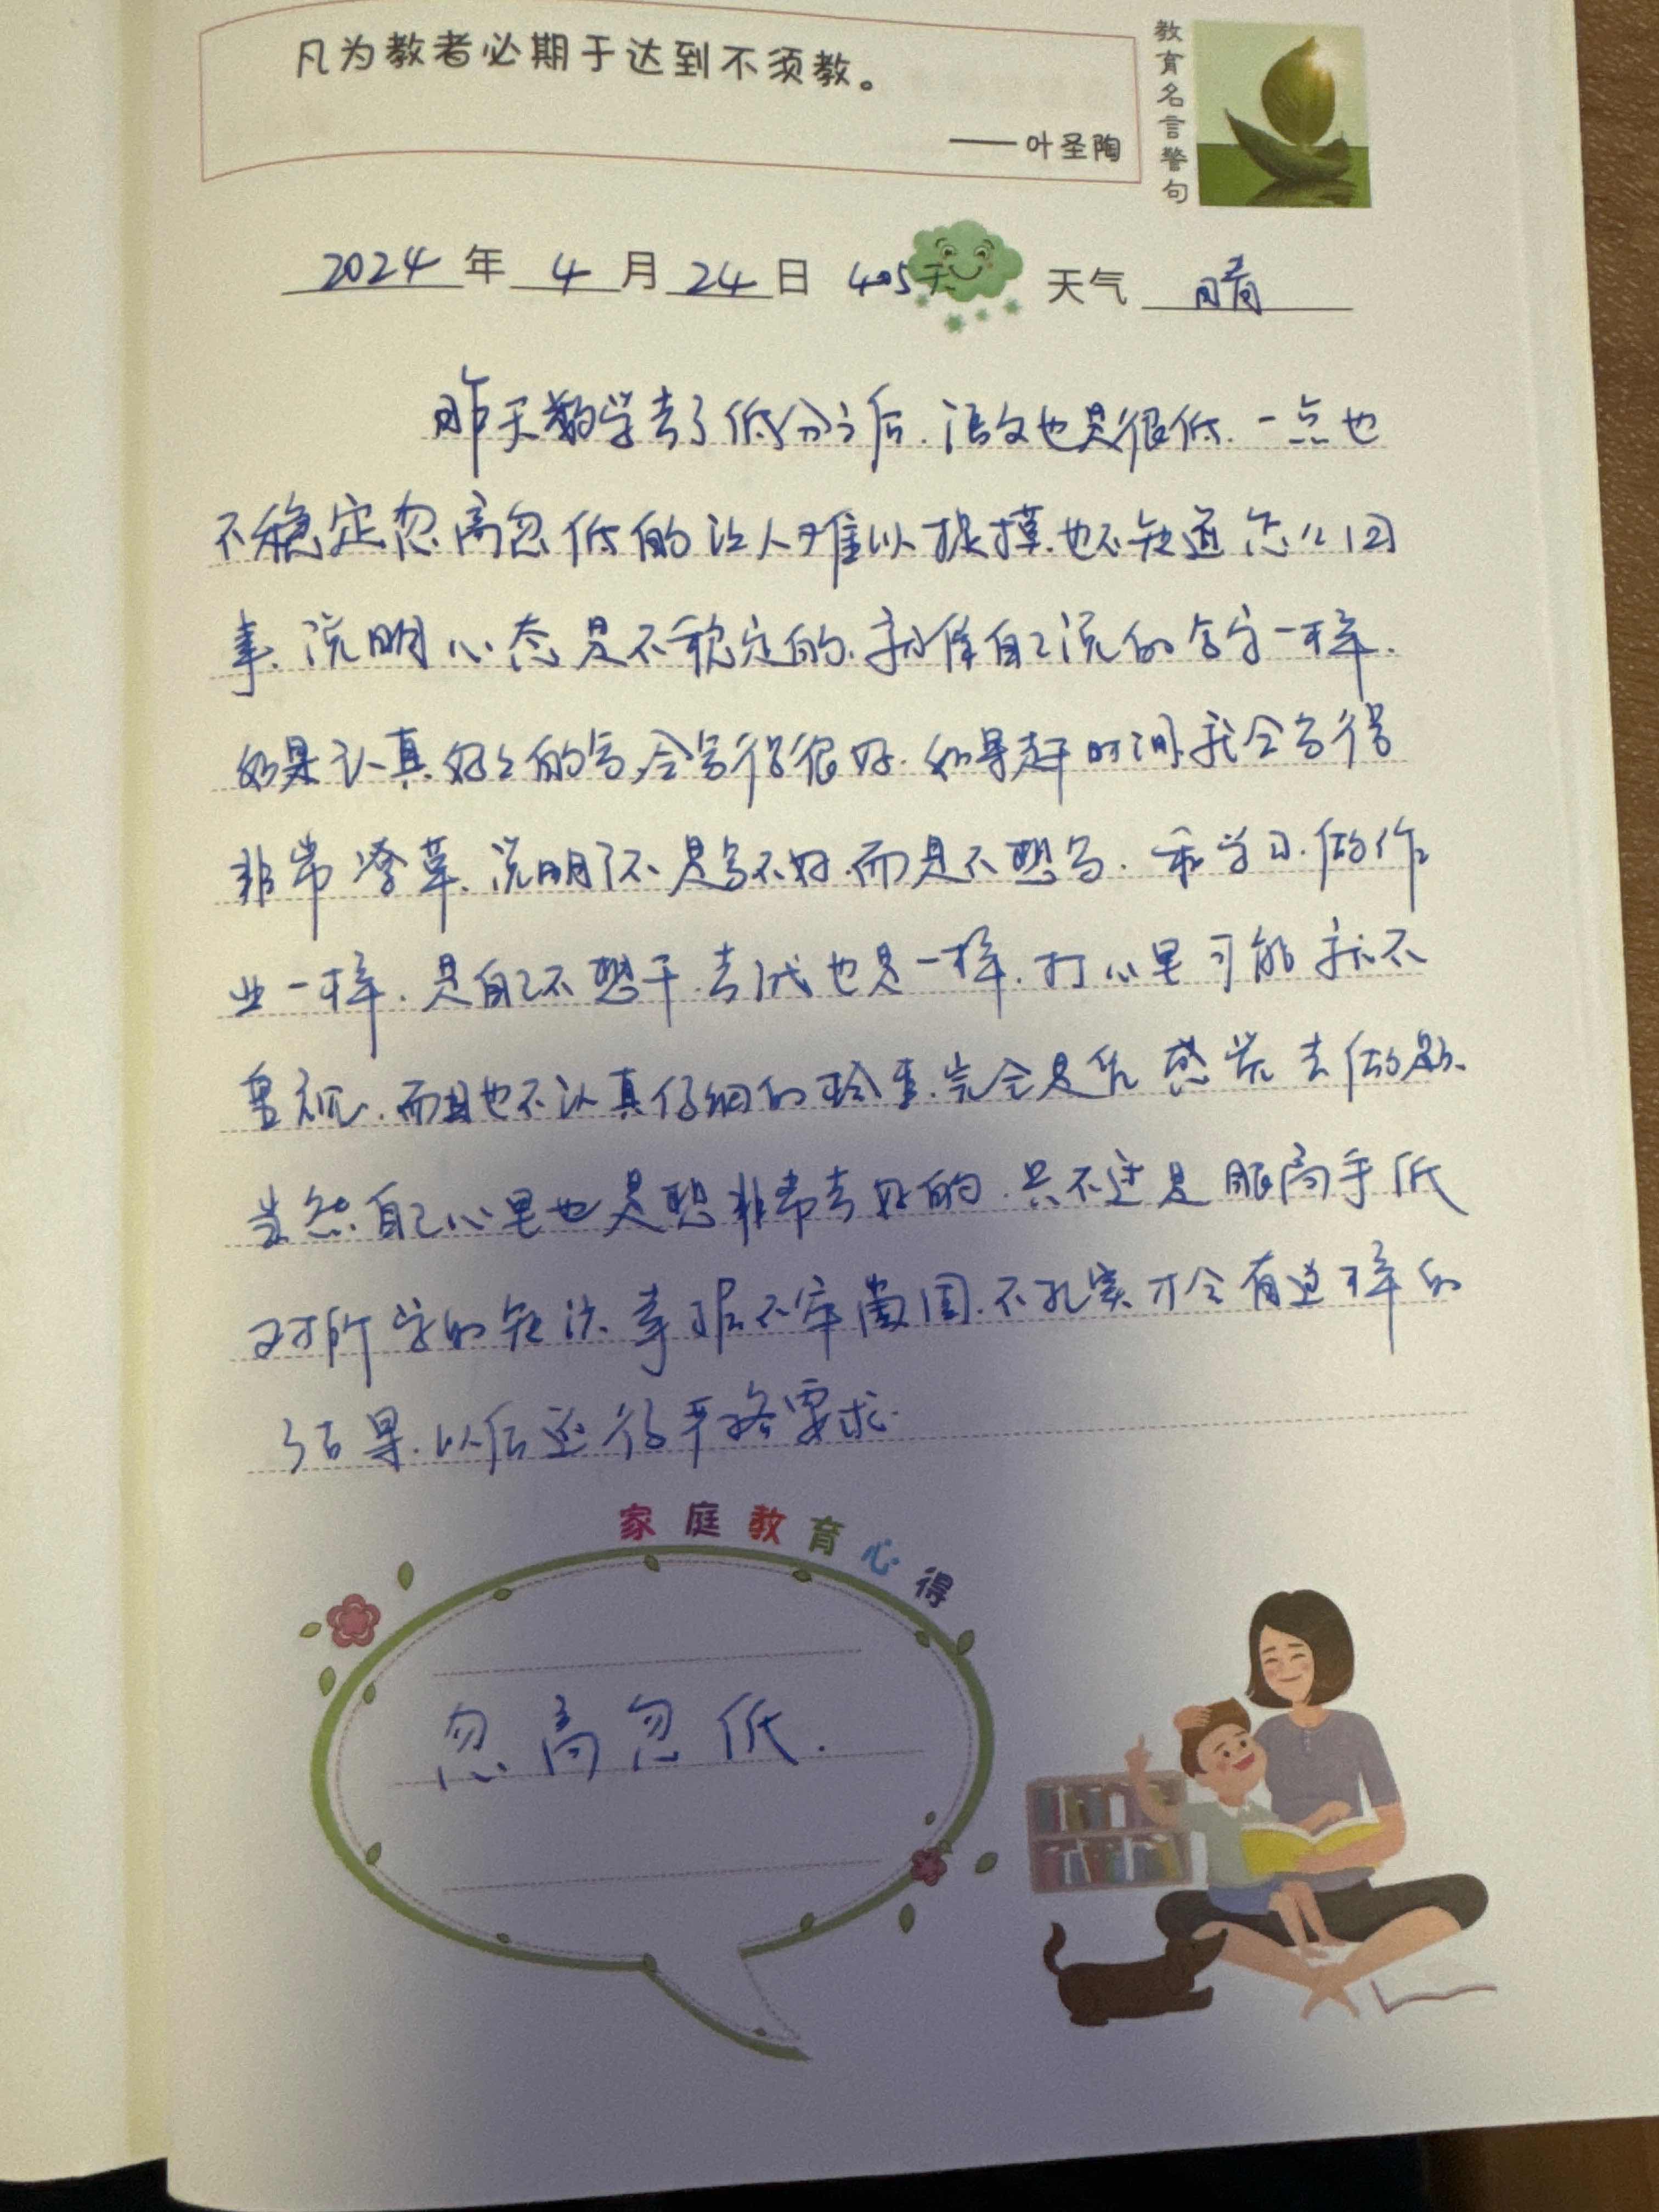 凡为教者必期于达到不须教。
——叶圣陶
教育名言警句
2024年4月24日 405天 天气 晴
昨天数学考了低分之后.语文也是很低.一点也
不稳定忽高忽低的让人难以捉摸.也不知道怎么回
事.说明心态是不稳定的.就像自己说的写字一样.
如果认真好好的写,会写得很好.如果赶时间就会写得
非常潦草.说明了不是写不好.而是不想写.和学习.做作
业一样.是自己不想干.考试也是一样.打心里可能就不
重视.而且也不认真仔细的检查.完全是凭感觉去做题.
当然.自己心里也是想非常考好的.只不过是眼高手低
对所学的知识.掌握不牢固.不扎实.才会有这样的
结果.以后还得严格要求.
家庭教育心得
忽高忽低.